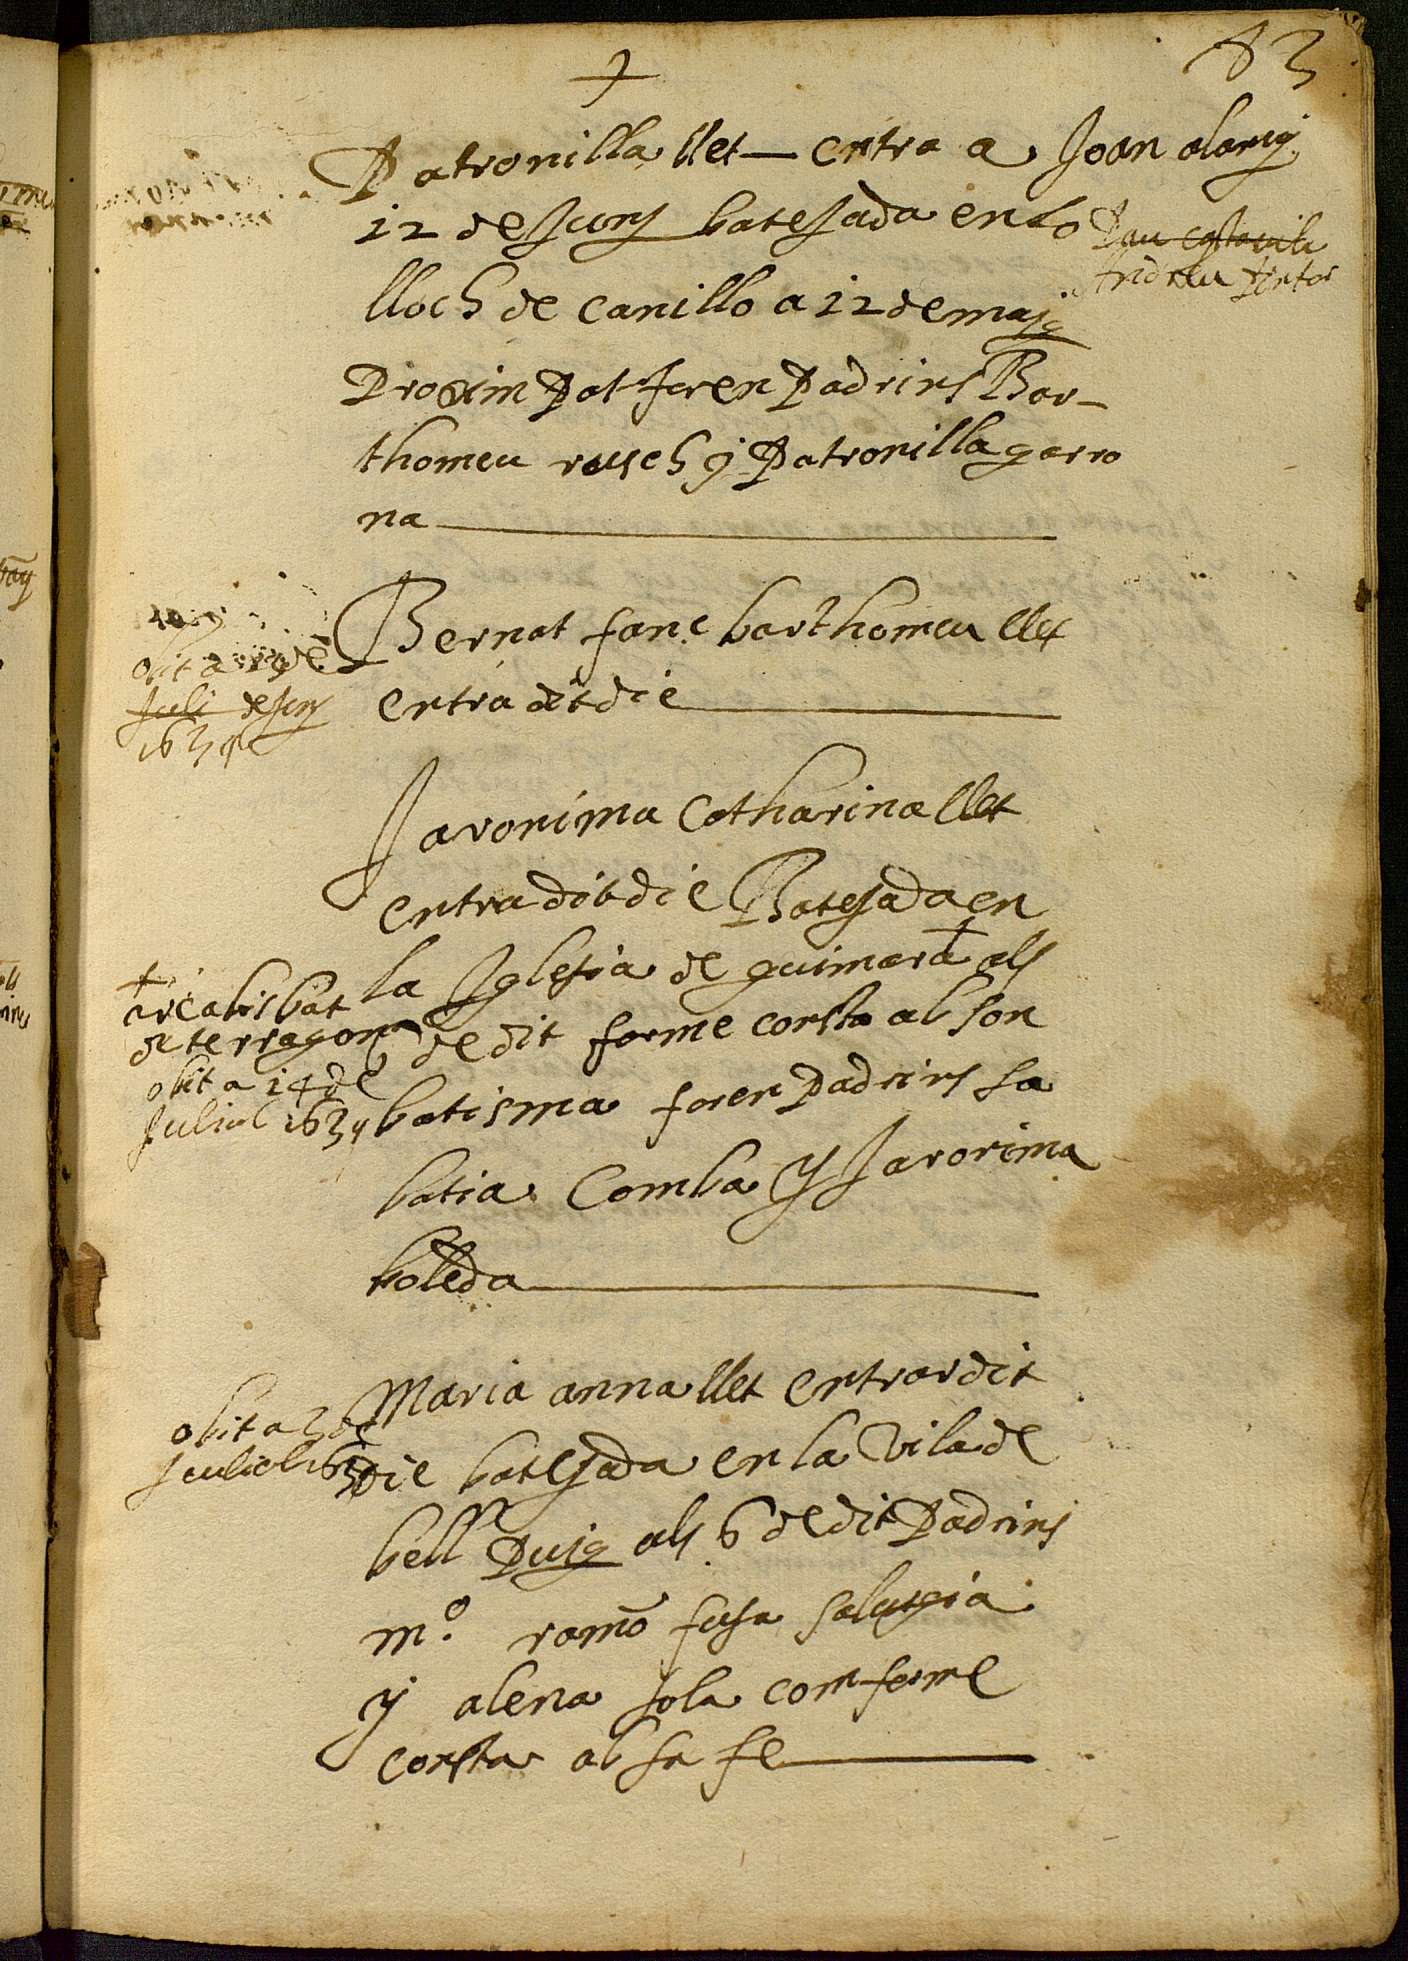 83
Patronilla llet entra a Joan alarig
12 de Juny batejada en lo
lloch de canillo a 12 de maig
Proxim Pat foren Padrins Bar-
thomeu rosch y Patronilla garro
na
Bernat fanc barthomeu llet
entra dit die
obit a 19 de
Juli de Juny
1634
Jaronima Catharina llet
entra dit die Batejada en
la Iglesia de guimera als
dedit forme consta ab son
batisma foren Padrins sa
batia Comba y Jaronima
boleda
arcabisbat
de terragona
obit a 14 de
Juliol 1634
Maria anna llet entra dit
die batejada en la vila de
bell Puig als 6 de dit Padrins
mº ramõ
y alena sola comforme
consta ab sa fe
obit a 3 de
Juliol